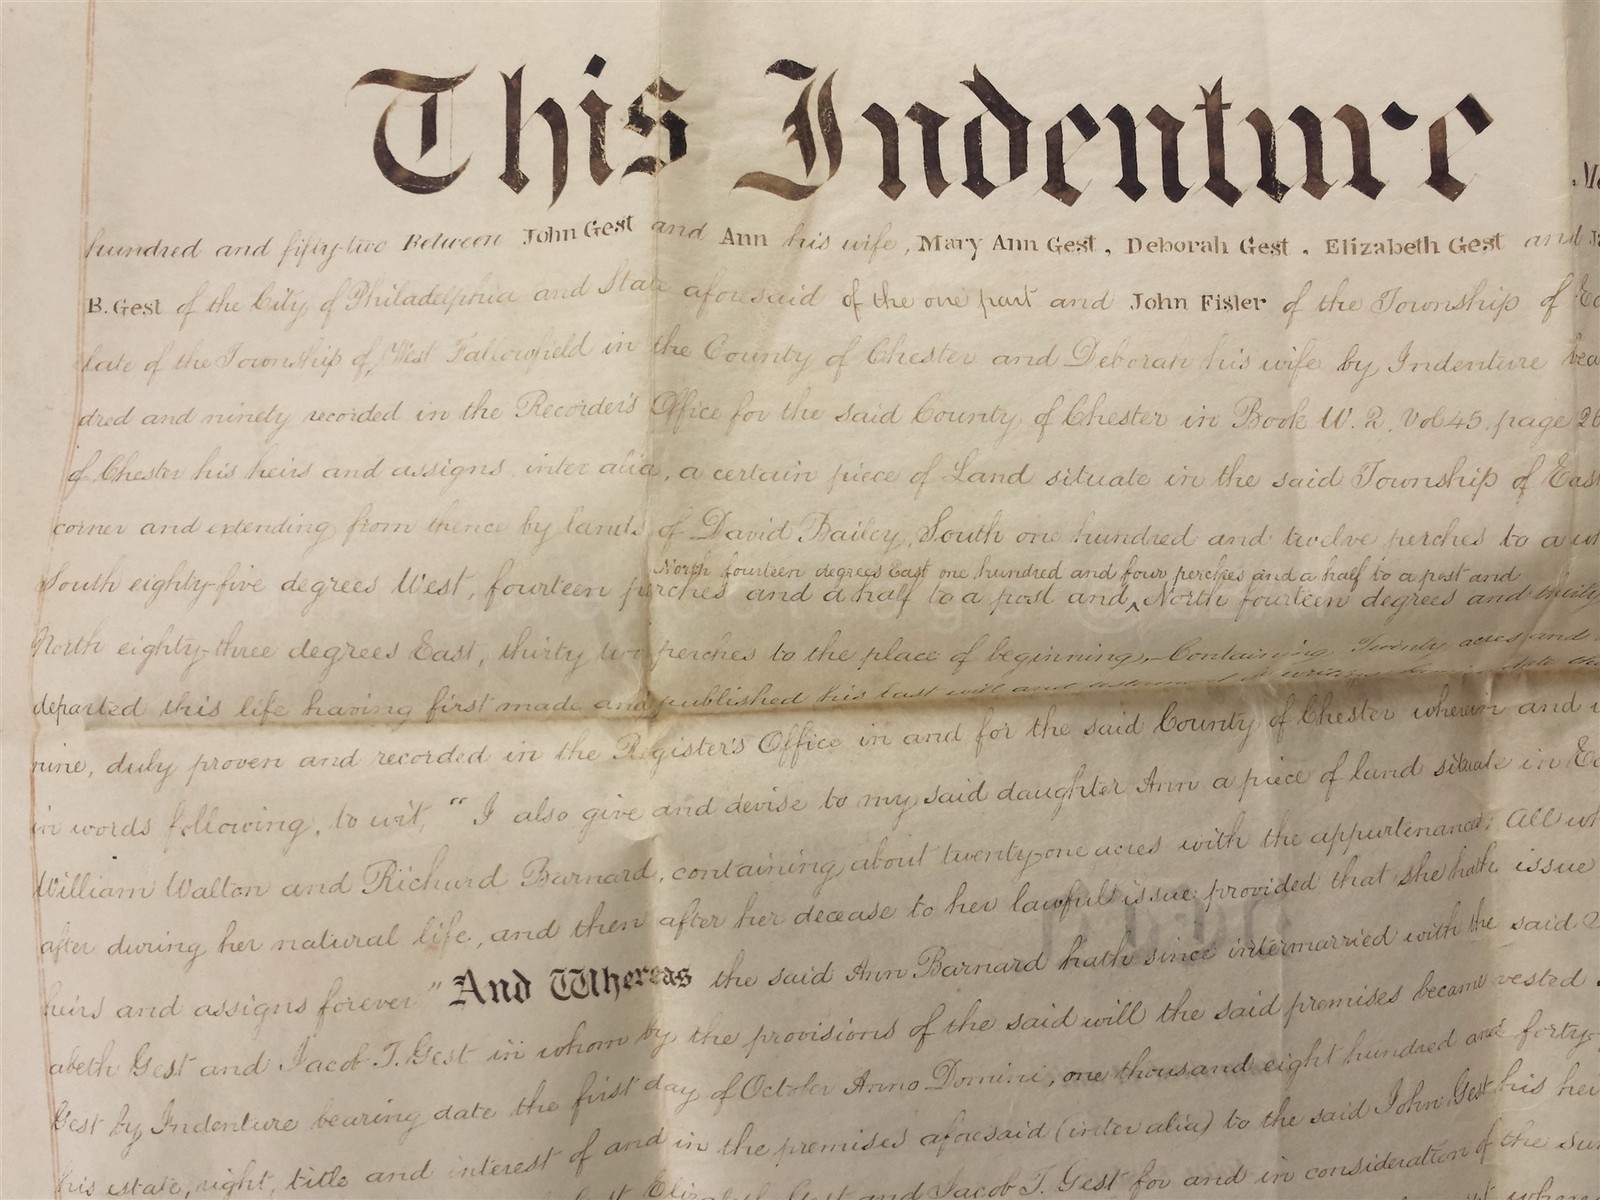 This Indenture
hundred and fifty-two Between John Gest and Ann his wife, Mary Ann Gest, Deborah Gest, Elizabeth Gest and
B. Gest of the City of Philadelphia and State aforesaid of the one part and John Fisler of the Township of
late of the Township of West Fallowfield in the County of Chester and Deborah his wife by Indenture
dred and ninety recorded in the Recorder's Office for the said County of Chester in Book W. 2, Vol 45, page 26
of Chester his heirs and assigns inter alia, a certain piece of Land situate in the said Township of East
corner and extending from thence by lands of David Bailey, South one hundred and twelve perches to a
North fourteen degrees East one hundred and four perches and a half to a post and
South eighty-five degrees West, fourteen perches and a half to a post and, ^ North fourteen degrees and thirty
North eighty-three degrees East, thirty two perches to the place of beginning, Containing Twenty acres and
departed this life having first made and published his last will and testament in writing
nine, duly proven and recorded in the Register's Office in and for the said County of Chester wherein and
in words following, to wit, "I also give and devise to my said daughter Ann a piece of land situate in
William Walton and Richard Barnard, containing about twenty-one acres with the appurtenances; All
after during her natural life, and then after her decease to her lawful issue provided that she hath issue
heirs and assigns forever" And Whereas the said Ann Barnard hath since intermarried with the said
abeth Gest and Jacob T. Gest in whom by the provisions of the said will the said premises became vested
Gest by Indenture bearing date the first day of October Anno Domini, one thousand eight hundred and forty-
his estate, right, title and interest of and in the premises aforesaid (inter alia) to the said John Gest his
Elizabeth Gest and Jacob T. Gest for and in consideration of the